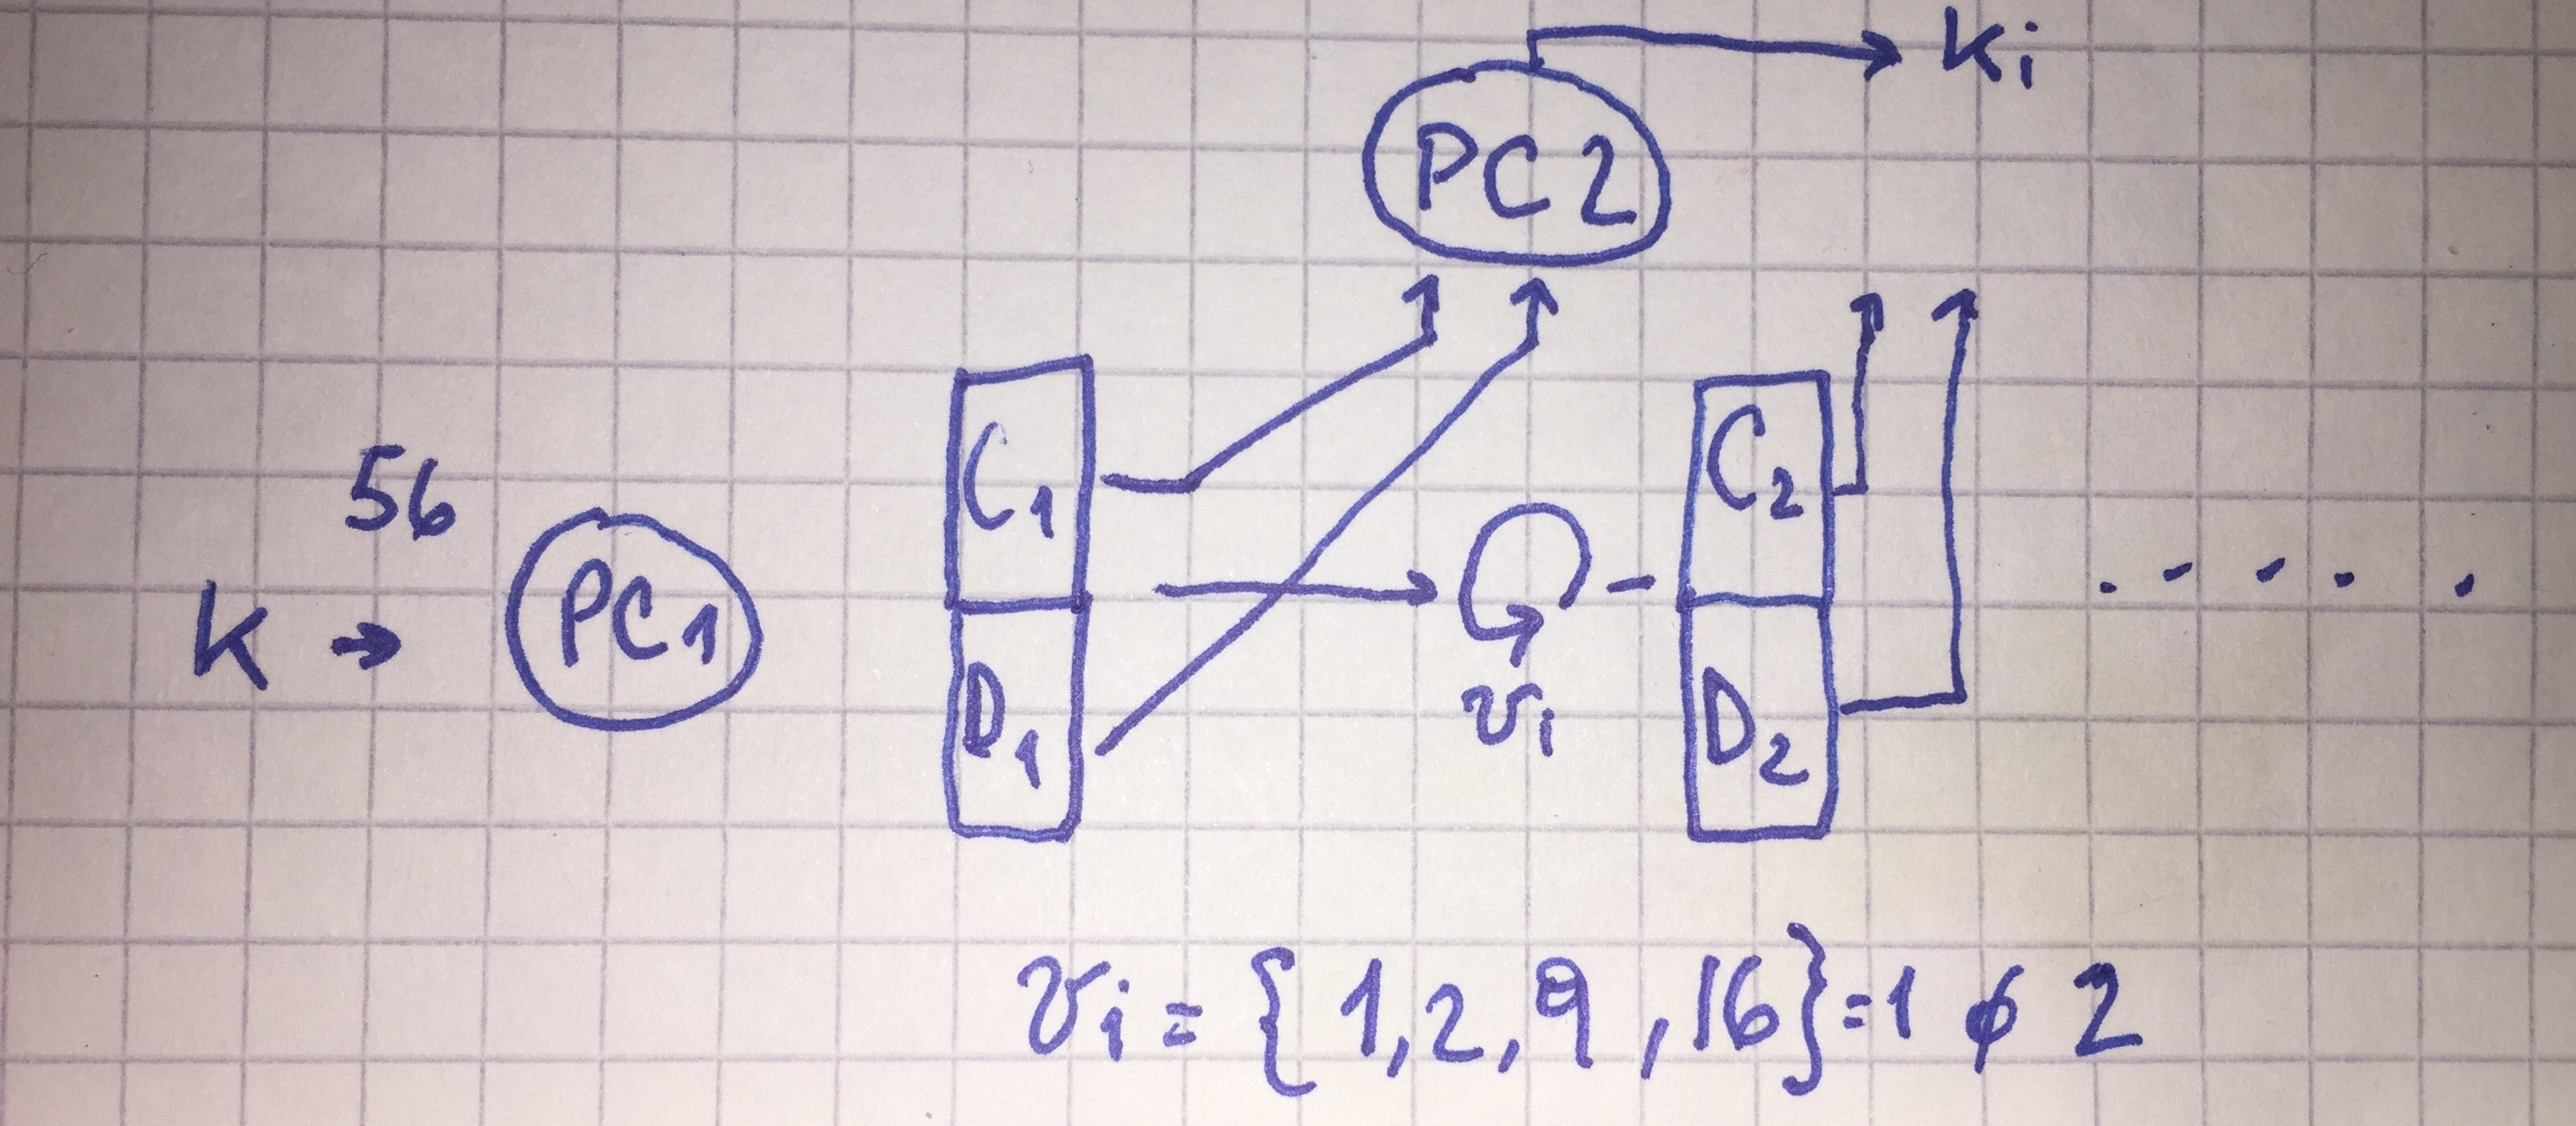 Ki
PC2
56
K → PC1
C1
D1
vi
C2
D2
.....
vi = { 1, 2, 9, 16 } = 1 ó 2